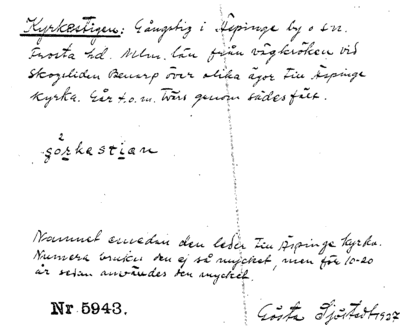 Kyrkestigen: Gångstig i Äspinge by o sn.
Frosta hd. Mlm. län från vägkröken vid
Skogsliden Benarp över olika ägor till Äspinge
kyrka. Går t.o.m. tvärs genom sädesfält.
2
gorkastian
Namnet emedan den leder till Äspinge kyrka.
Numera brukas den ej så mycket, men för 10-20
år sedan användes den mycket.
Nr 5943.
Gösta Sjöstedt 1927